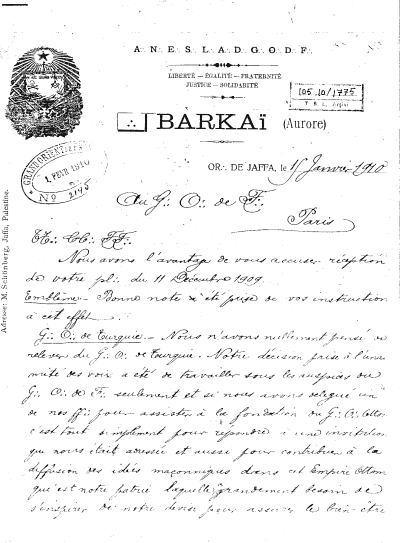 A. N. E. S. L. A. D. G. O. D. F.
LIBERTÉ — ÉGALITÉ — FRATERNITÉ
JUSTICE — SOLIDARITÉ
105.10/1775
BARKAÏ (Aurore)
OR∴ DE JAFFA, le 15 Janvier 1910
GRAND ORIENT
1 FEVR 1910
No 2175
Au G∴ O∴ de F∴
Paris
TT∴ CC∴ FF∴
Nous avons l'avantage de vous accuser réception
de votre pl∴ du 11 Décembre 1909.
Emblème — Bonne note a été prise de vos instruction
à cet effet.
G∴ O∴ de Turquie — Nous n'avons nullement pensé de
relever du G∴ O∴ de Turquie. Notre décision prise à l'una
mité des voix a été de travailler sous les auspices du
G∴ O∴ de F∴ seulement et si nous avons délégué un
de nos ff∴ pour assister à la fondation du G∴ O∴ Ottom
c'est tout simplement pour répondre à une invitation
qui nous était adressée et aussi pour contribuer à la
diffusion des idées maçonniques dans cet Empire Ottom
qui est notre patrie laquelle a grandement besoin de
s'inspirer de notre devise pour assurer le bien-être
Adresse: M. Schönberg, Jaffa, Palestine.